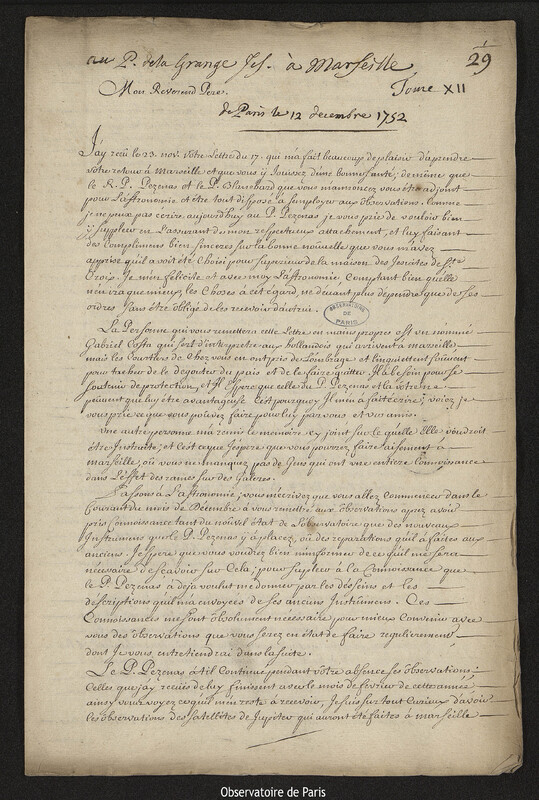 au P. de la Grange Jes. à Marseille
29
Mon Reverend Pere.
Tome XII
de Paris le 12 decembre 1752
J'ay reçû le 23. nov. votre Lettre du 17. qui m'a fait beaucoup de plaisir d'aprendre
votre retour à Marseille et que vous y Jouissez d'une bonne santé; de même que
le R. P. Pezenas et le P. Blanchard que vous m'annoncez vous être adjoint
pour l'astronomie et être tout disposé à s'employer aux observations. Comme
je ne peux pas ecrire aujourdhuy au P. Pezenas je vous prie de vouloir bien
y Suppleer en l'assurant de mon respectueux attachement, et luy faisant
des Complimens bien sinceres sur la bonne nouvelle que vous m'avez
aprise qu'il avoit été Choisi pour superieur de la maison des Jesuites de Ste
Croix. Je m'en félicite et avec moy l'astronomie Comptant bien qu'elle
n'en ira que mieux, les Choses à cet égard, ne devant plus dépendre que de ses
ordres sans être obligé de les recevoir d'autrui.
OBSERVATOIRE
DE
PARIS
La Personne qui vous remettera cette Lettre en mains propres est un nommé
Gabriel Costa qui sert d'interprete aux hollandois qui arrivent à marseille
mais les Courtiers de Chez vous en ont pris de l'ombrage et l'inquiettent souvent
pour tacher de le dégouter du païs et de le faire quitter. Il a besoin pour se
soutenir de protection, et Il Espere que celle du P. Pezenas et la votre
peuvent que luy être avantageuse c'est pourquoy Il m'en a fait écrire; voiez je
vous prie ce que vous pouvez faire pour luy par vous et vos amis.
Une autre personne m'a remis le memoire cy joint sur le quel Elle voudroit
être Instruite; et c'est ce que j'espere que vous pourrez faire aisement à
marseille, où vous ne manquez pas de Gens qui ont une entiere Connoissance
dans l'effet des rames sur des Galeres.
Passons à l'astronomie; vous m'écrivez que vous allez Commencer dans le
Courant du mois de Décembre à vous remettre aux observations apres avoir
pris Connoissance tant du nouvel état de l'observatoire que des nouveaux
Instrumens que le P. Pezenas y a placez, ou des reparations qu'il a faites aux
anciens. J'espere que vous voudrez bien m'informer de ce qu'il me sera
nécessaire de sçavoir sur Cela; pour supleer à la Connoissance que
le P. Pezenas a deja voulu me donner par les desseins et les
descriptions qu'il m'a envoyées de ses anciens Instrumens. Ces
Connoissances me sont absolument necessaire pour mieux Convenir avec
vous des observations que vous serez en état de faire regulierement
dont je vous entretiendrai dans la suite.
Le P. Pezenas a til Continué pendant votre absence ses observations:
Celles que j'ay recües de luy finissent avec le mois de fevrier de cette année
ainsy vous voyez ce qu'il m'en reste à recevoir, Je suis sur tout Curieux d'avoir
les observations des satellites de Jupiter qui auront été faites à marseille
Observatoire de Paris